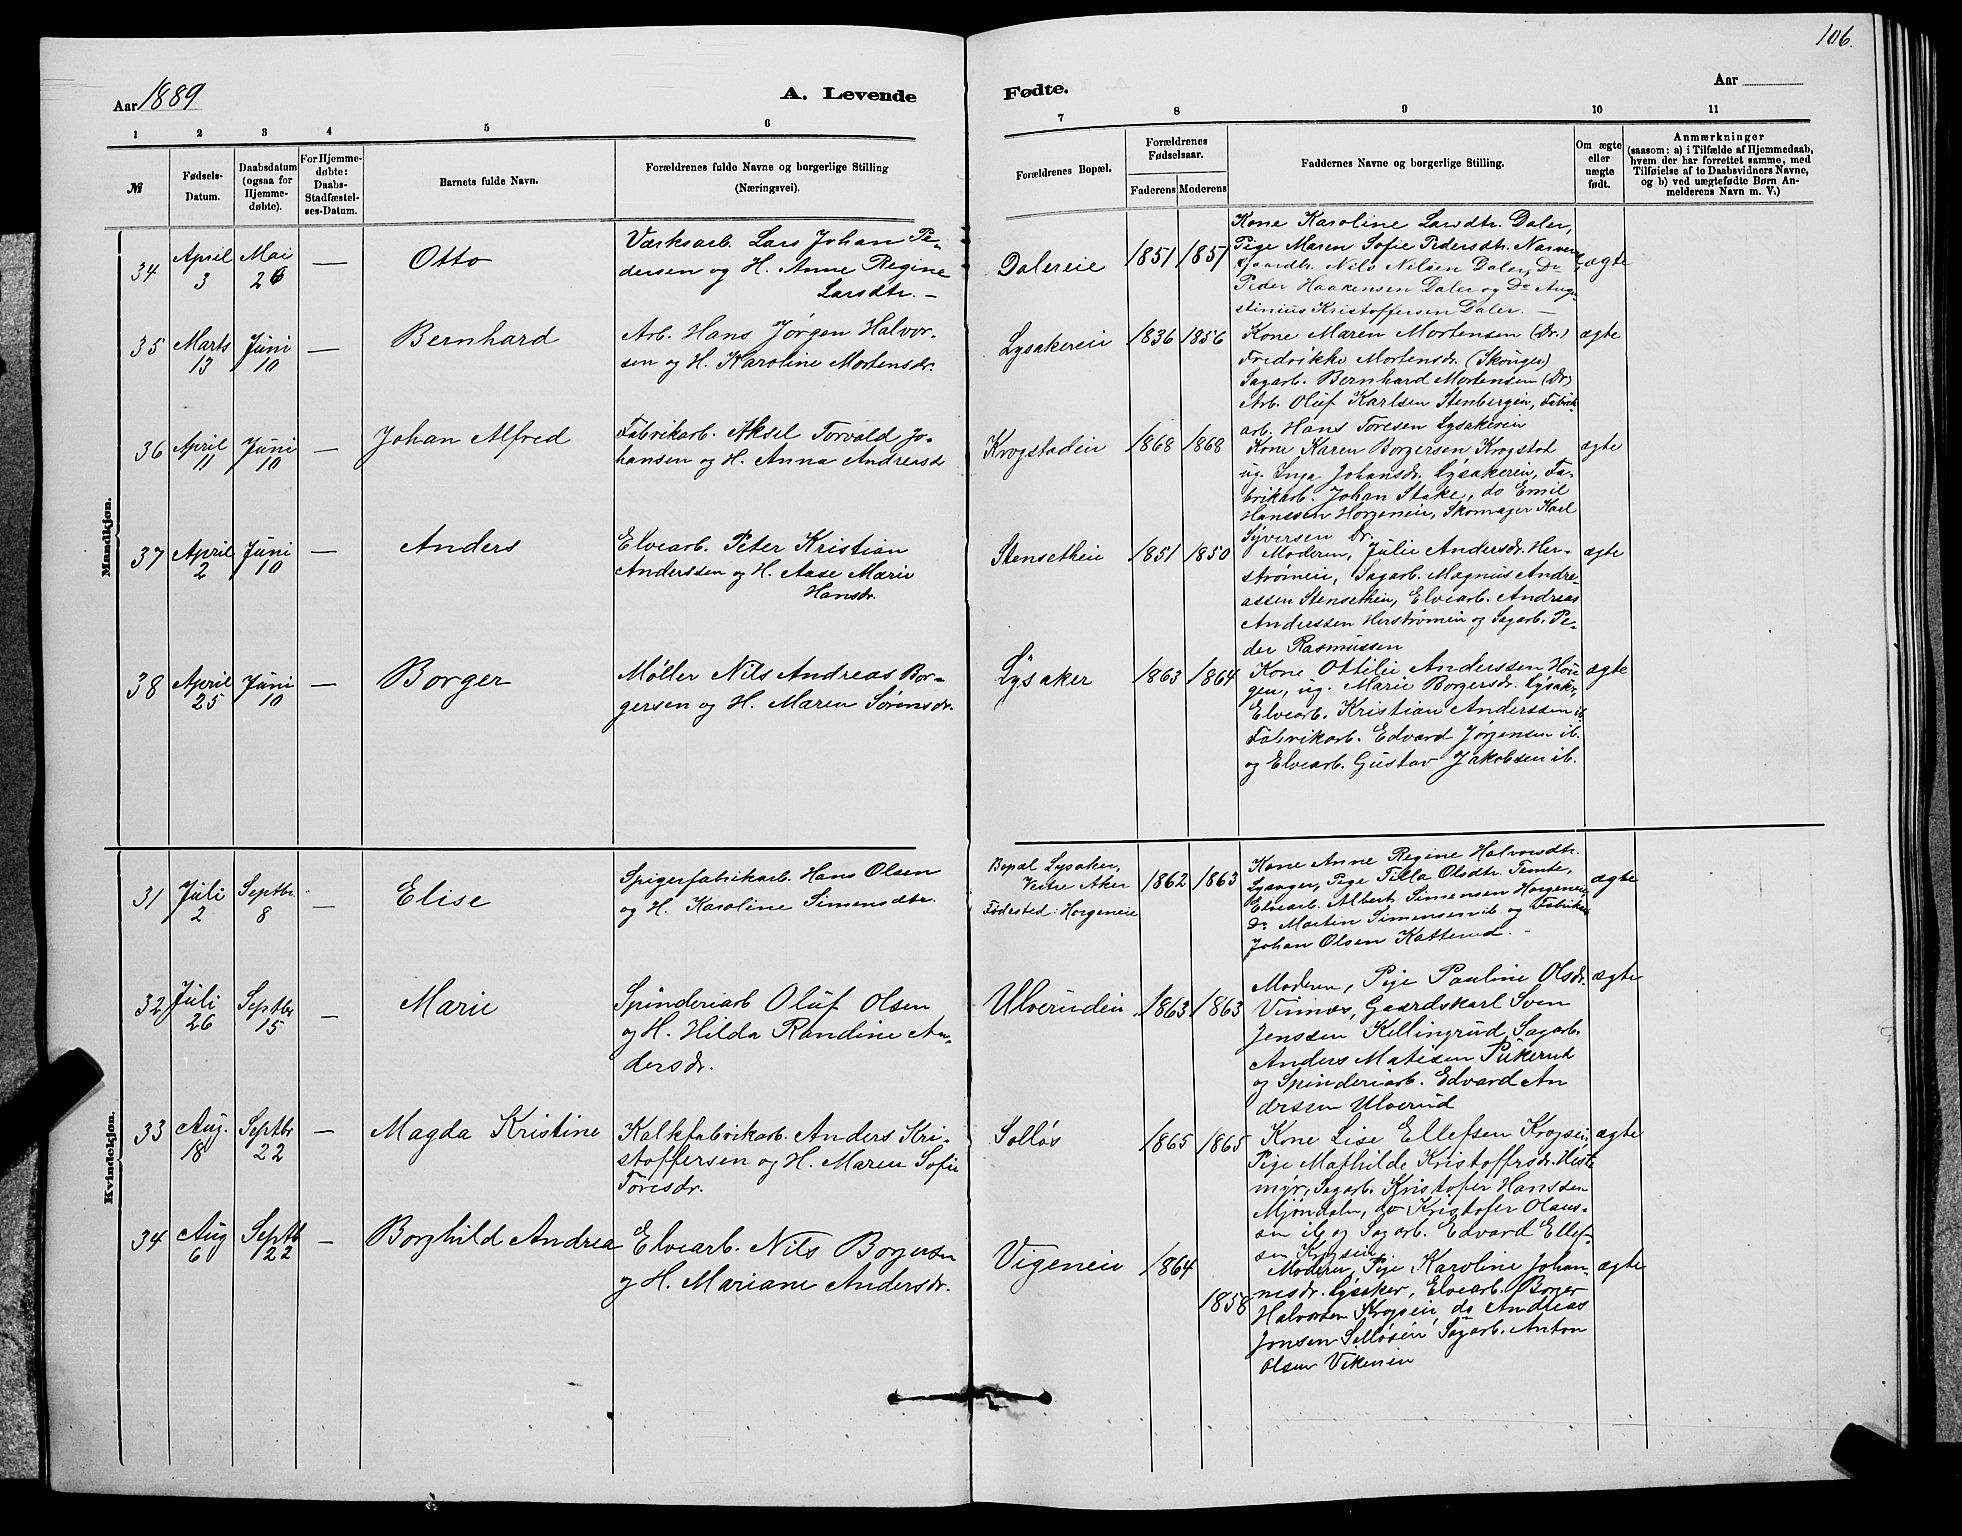 106.
Aar 1889
A. Levende
Fødte.
Aar
1 2 3 4 5 6
7 8 9 10 11
№
Fødsels-
Datum.
Daabsdatum
(ogsaa for
Hjemme-
døbte).
For Hjemme-
døbte:
Daabs-
Stadfæstel-
ses-Datum.
Barnets fulde Navn.
Forældrenes fulde Navne og borgerlige Stilling
(Næringsvei).
Forældrenes Bopæl.
Forældrenes
Fødselsaar.
Faderens Moderens
Faddernes Navne og borgerlige Stilling.
Om ægte
eller
uægte
født.
Anmærkninger
(saasom: a) i Tilfælde af Hjemmedaab,
hvem der har forrettet samme, med
Tilføielse af to Daabsvidners Navne,
og b) ved uægtefødte Børn An-
melderens Navn m. V.)
Mandkjøn.
34
April
3
Mai
26
—
Otto
Værksarb. Lars Johan Pe-
dersen og H. Anne Regine
Larsdtr. —
Dalereie
1851 1851
Kone Karoline Larsdtr. Daler,
Pige Maren Sofie Pedersdtr. Narverud,
Gaardbr. Nils Nilsen Daler, Do
Peder Haakensen Daler og Do Aug-
stinius Kristoffersen Daler. —
ægte
35
Marts
13
Juni
10
—
Bernhard
Arb. Hans Jørgen Halvor-
sen og H. Karoline Mortensdr.
Lysakereii
1836 1856
Kone Maren Mortensen (Dr.)
Fredrikke Mortensdr. (Skouger)
Sagarb. Bernhard Mortensen (Dr)
Arb. Oluf Karlsen Stenbergeie, Fabrik-
arb. Hans Toresen Lysakereie
ægte
36
April
11
Juni
10
—
Johan Alfred
Fabrikarb. Aksel Torvald Jo-
hansen og H. Anna Andreasd
Krogstadeie
1868 1868
Kone Karen Borgersen Krogstad
ug. Inga Johansdr. Lysakereie, Fa-
brikarb. Johan Stake, do Emil
Hanssen Horgeneie, Skomager Karl
Syversen Dr.
ægte
37
April
2
Juni
10
—
Anders
Elvearb. Peter Kristian
Anderssen og H. Aase Marie
Hansdr.
Stensetheie
1851 1850
Moderen, Julie Andersdr. Her-
strømeie, Sagarb. Magnus Andre-
assen Stensetheie, Elvearb. Andreas
Anderssen Herstrømeie og Sagarb. Pe-
der Rasmussen
ægte
38
April
25
Juni
10
—
Borger
Møller Nils Andreas Bor-
gersen og H. Maren Sørensdr.
Lysaker
1863 1864
Kone Ottilie Anderssen Hou-
gen, ug. Marie Borgersdr. Lysaker,
Elvearb. Kristian Anderssen ib
Fabrikarb. Edvard Jørgensen ib.
og Elvearb. Gustav Jakobsen ib.
ægte
Kvindekjøn.
31
Juli
2
Septbr
8
-
Elise
Spigerfabrikarb. Hans Olsen
og H. Karoline Simensdtr.
Bopæl Lysaker,
Vestre Aker
Fødested: Horgeneie
1862 1863
Kone Anne Regine Halvorsdtr.
Pige Tilla Olsdtr. Temte,
Elvearb. Albert Simensen Horgeneie,
Do Martin Simensen ib og Fabrikarb
Johan Olsen Katterud. —
ægte
32
Juli
26
Septbr
15
—
Marie
Spinderiarb Oluf Olsen
og H. Hilda Randine An-
dersdr.
Ulverudeie
1863 1863
Moderen, Pige Pauline Olsdr.
Vinnæs, Gaardskarl Sven
Jenssen Kellingrud, Sagarb.
Anders Matisen Pukerud
og Spinderiarb. Edvard An
dersen Ulverud
ægte
33
Aug.
18
Septbr
22
—
Magda Kristine
Kalkfabrikarb. Anders Kri-
stoffersen og H. Maren Sofie
Toresdr.
Solløs
1865 1865
Kone Lise Ellefsen Krogseie,
Pige Mathilde Kristoffersdr. Heste
myr, Sagarb. Kristofer Hanssen
Mjøndalen, do Kristofer Olaus-
sen ib, og Sagarb. Edvard Ellef-
sen Krogseie
ægte
34
Aug
6
Septb
22
—
Borghild Andrea
Elvearb. Nils Borgersen
og H. Mariane Andersdr.
Vigeneie
1864
1858
Moderen, Pige Karoline Johan-
nesdr. Lysaker, Elvearb. Borger
Halvorsen Krogseie, do Andreas
Jonsen Solløseie, Sagarb. Anton
Olsen Vikeneie
ægte